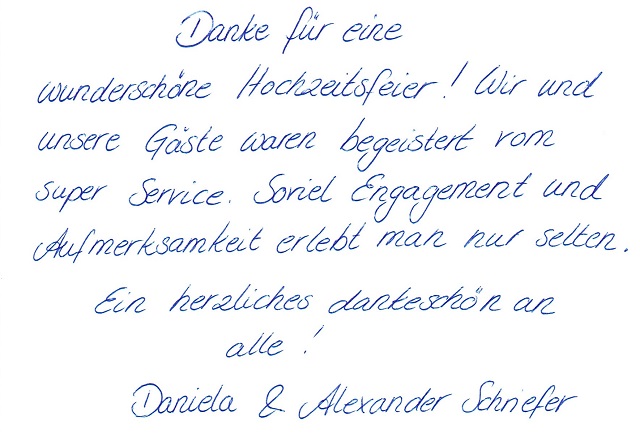 Danke für eine
wunderschöne Hochzeitsfeier! Wir und
unsere Gäste waren begeistert vom
super Service. Soviel Engagement und
Aufmerksamkeit erlebt man nur selten.
Ein herzliches dankeschön an
alle!
Daniela & Alexander Schriefer